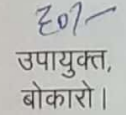 ह0/-
उपायुक्त,
बोकारो।